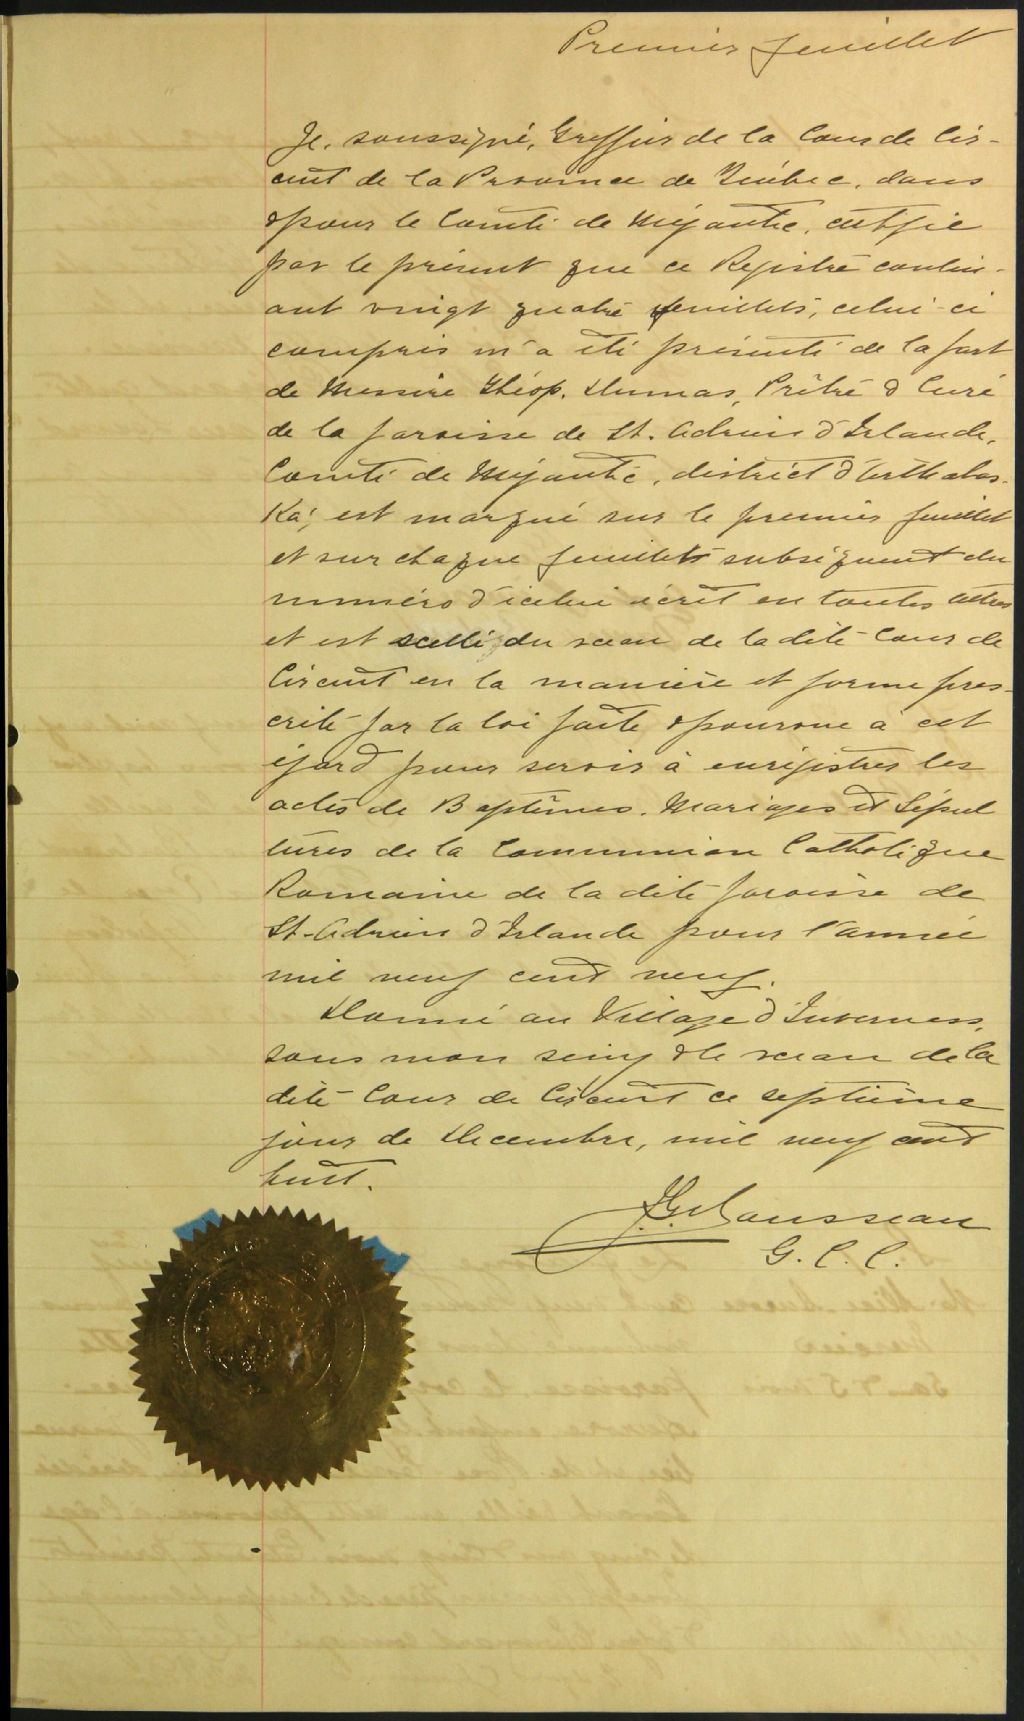 Premier feuillet
Je, soussigné, Greffier de la Cour de Cir-
cuit de la Province de Québec, dans
& pour le Comté de Mégantic, certifie
par le présent que ce Registre conten-
ant vingt quatre feuillets, celui-ci
compris m'a été présenté de la part
de Messire Théop. Dumas, Prêtre & Curé
de la paroisse de St. Adrien d'Irlande,
Comté de Mégantic, district d'Arthabas-
Ka; est marqué sur le premier feuillet
et sur chaque feuillets subséquent du
numéro d'icelui écrit en toutes lettres
et est scellé du sceau de la dite Cour de
Circuit en la manière et forme pres-
crite par la loi faite & pourvue à cet
égard pour servir à enrégistrer les
actes de Baptêmes, Mariages et Sépul
tures de la Communion Catholique
Romaine de la dite paroisse de
St-Adrien d'Irlande pour l'année
mil neuf cent neuf.
Donné au Village d'Inverness,
sous mon seing & le sceau de la
dite Cour de Circuit ce septième
jour de Decembre, mil neuf cent
huit.
Rousseau
G. C. C.